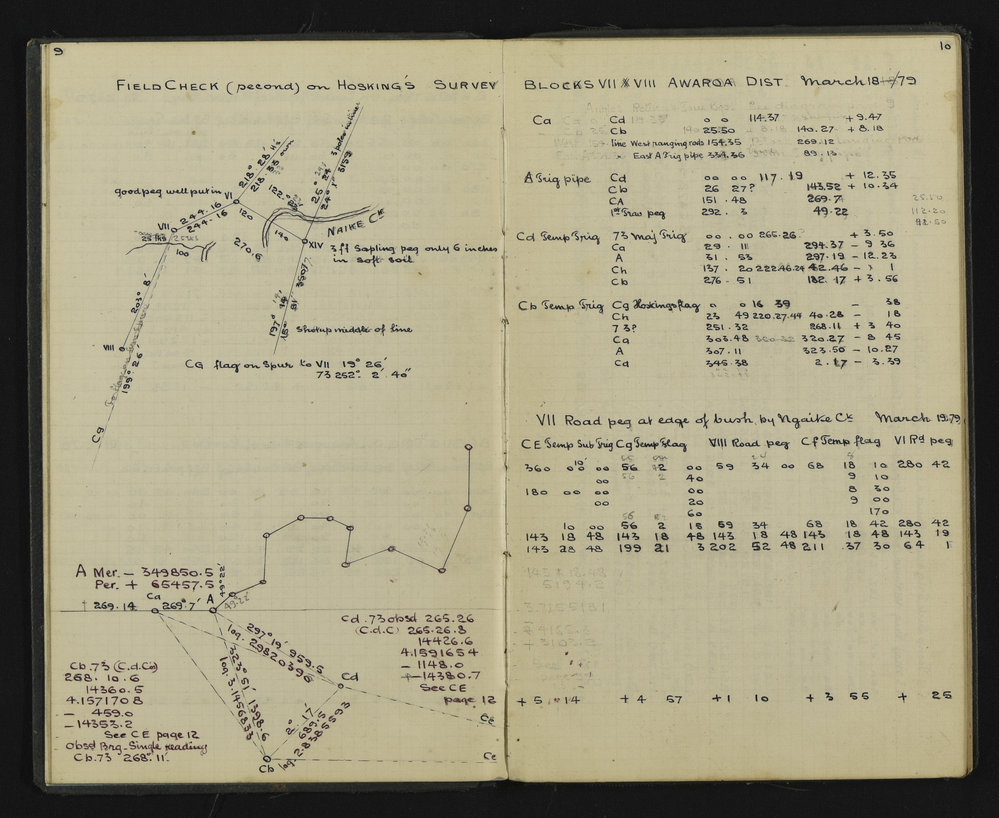 9
FIELD CHECK (second) on HOSKING'S SURVEY
218° 28' Hs
218 33 own
good peg well put in VI
244.16
244.16
VII
120
122°
26° 24'
24° 1'
3159
3 poles in line
NAIKE Ck
140
XIV
3 ft Sapling peg only 6 inches
in soft soil
25 lks
100
270.6
203° 8'
199° 26'
VIII
Cg
197°
15° 31'
35077
Shot up middle of line
CG flag on Spur to VII 19° 26'
73 252° 2' 40"
A Mer. - 349850.5
Per. + 65457.5
49° 22'
49.22
Ca
A
269.14
269° 7'
297° 19' 959.5
log. 29820396
323° 51' 1398.6
log. 3.1456833
Cd
Cd .73 obsd 265.26
(C.d.C) 265.26.8
14426.6
4.1591654
- 1148.0
+-14380.7
See CE
page 12
Cb.73 (C.d.Co)
268.10.6
14360.5
4.1571708
- 459.0
-14353.2
See CE page 12
Obsd Brg - Single reading
Cb.73 268° 11'
689.15
log. 2.8385593
Cb
Ce
Ce
10
BLOCKS VII & VIII AWAROA DIST. March 18/79
Ca Cd 0 0 114.37 + 9.47
Cb 25.50 140.27 + 8.18
line West ranging rods 154.35 269.12
" East A Trig pipe 334.36 89.13
A Trig pipe Cd 00 00 117.19 + 12.35
Cb 26 27? 143.52 + 10.34
CA 151.48 269.7
1st Trav peg 292.3 49.22
25.10
112.20
92.50
Cd Temp Trig 73 Maj Trig 00.00 265.26 + 3.50
Ca 29.11 294.37 - 9 36
A 31.53 297.19 - 12.23
Ch 137.20 222.46.24 42.46 - 1
Cb 276.51 182.17 + 3.56
Cb Temp Trig Cg Hoskings flag 0 0 16 39 - 38
Ch 23 49 220.27.44 40.28 - 18
73? 251.32 268.11 + 3 40
Ca 303.48 320.27 - 8 45
A 307.11 323.50 - 10.27
Cd 345.38 2.17 - 3.39
VII Road peg at edge of bush by Ngaike Ck March 19.79
CE Temp Sub Trig Cg Temp Flag VIII Road peg Cf Temp flag VI Rd peg
360 00 10' 00 56 2 00 59 34 00 68 18 10 280 42
00 56 2 40 9 10
180 00 00 00 8 30
00 20 9 00
60 170
10 00 56 2 18 59 34 68 18 42 280 42
143 18 48 143 18 48 143 18 48 143 18 48 143 19
143 28 48 199 21 3 202 52 48 211 37 30 64 1
+ 5 14 + 4 57 + 1 10 + 3 55 + 25